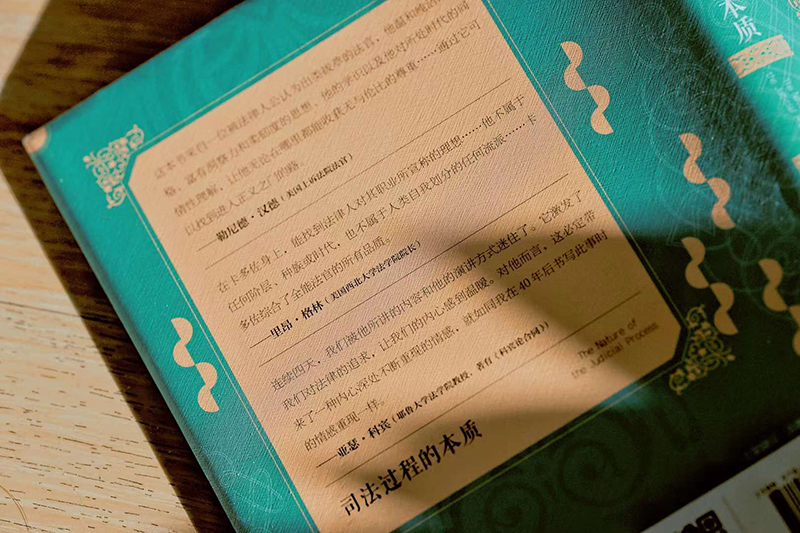 这本书来自一位被法律人公认为出类拔萃的法官,他温和雅
格,富有洞察力和柔韧度的思想、他的学识以及他对所处时代的同
情性理解,让他无论在哪里都能收获无与伦比的尊重……通过它可
以找到进入正义之门的路。
勒尼德·汉德(美国上诉法院法官)
在卡多佐身上,能找到法律人对其职业所宣称的理想……他不属于
任何阶层、种族或时代,也不属于人类自我划分的任何流派……卡
多佐综合了全能法官的所有品质。
里昂·格林(美国西北大学法学院院长)
连续四天,我们被他所讲的内容和他的演讲方式迷住了。它激发了
我们对法律的追求,让我们的内心感到温暖。对他而言,这必定带
来了一种内心深处不断重现的情感,就如同我在40年后书写此事时
的情感重现一样。
亚瑟·科宾(耶鲁大学法学院教授,著有《科宾论合同》)
The Nature of
the Judicial Process
司法过程的本质
本质